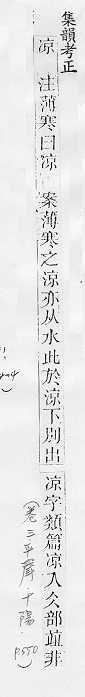 集韻考正
凉 注薄寒曰凉 案薄寒之凉亦从水此於凉下別出凉字類篇凉入仌部並非
(卷三平聲十陽 p.550)